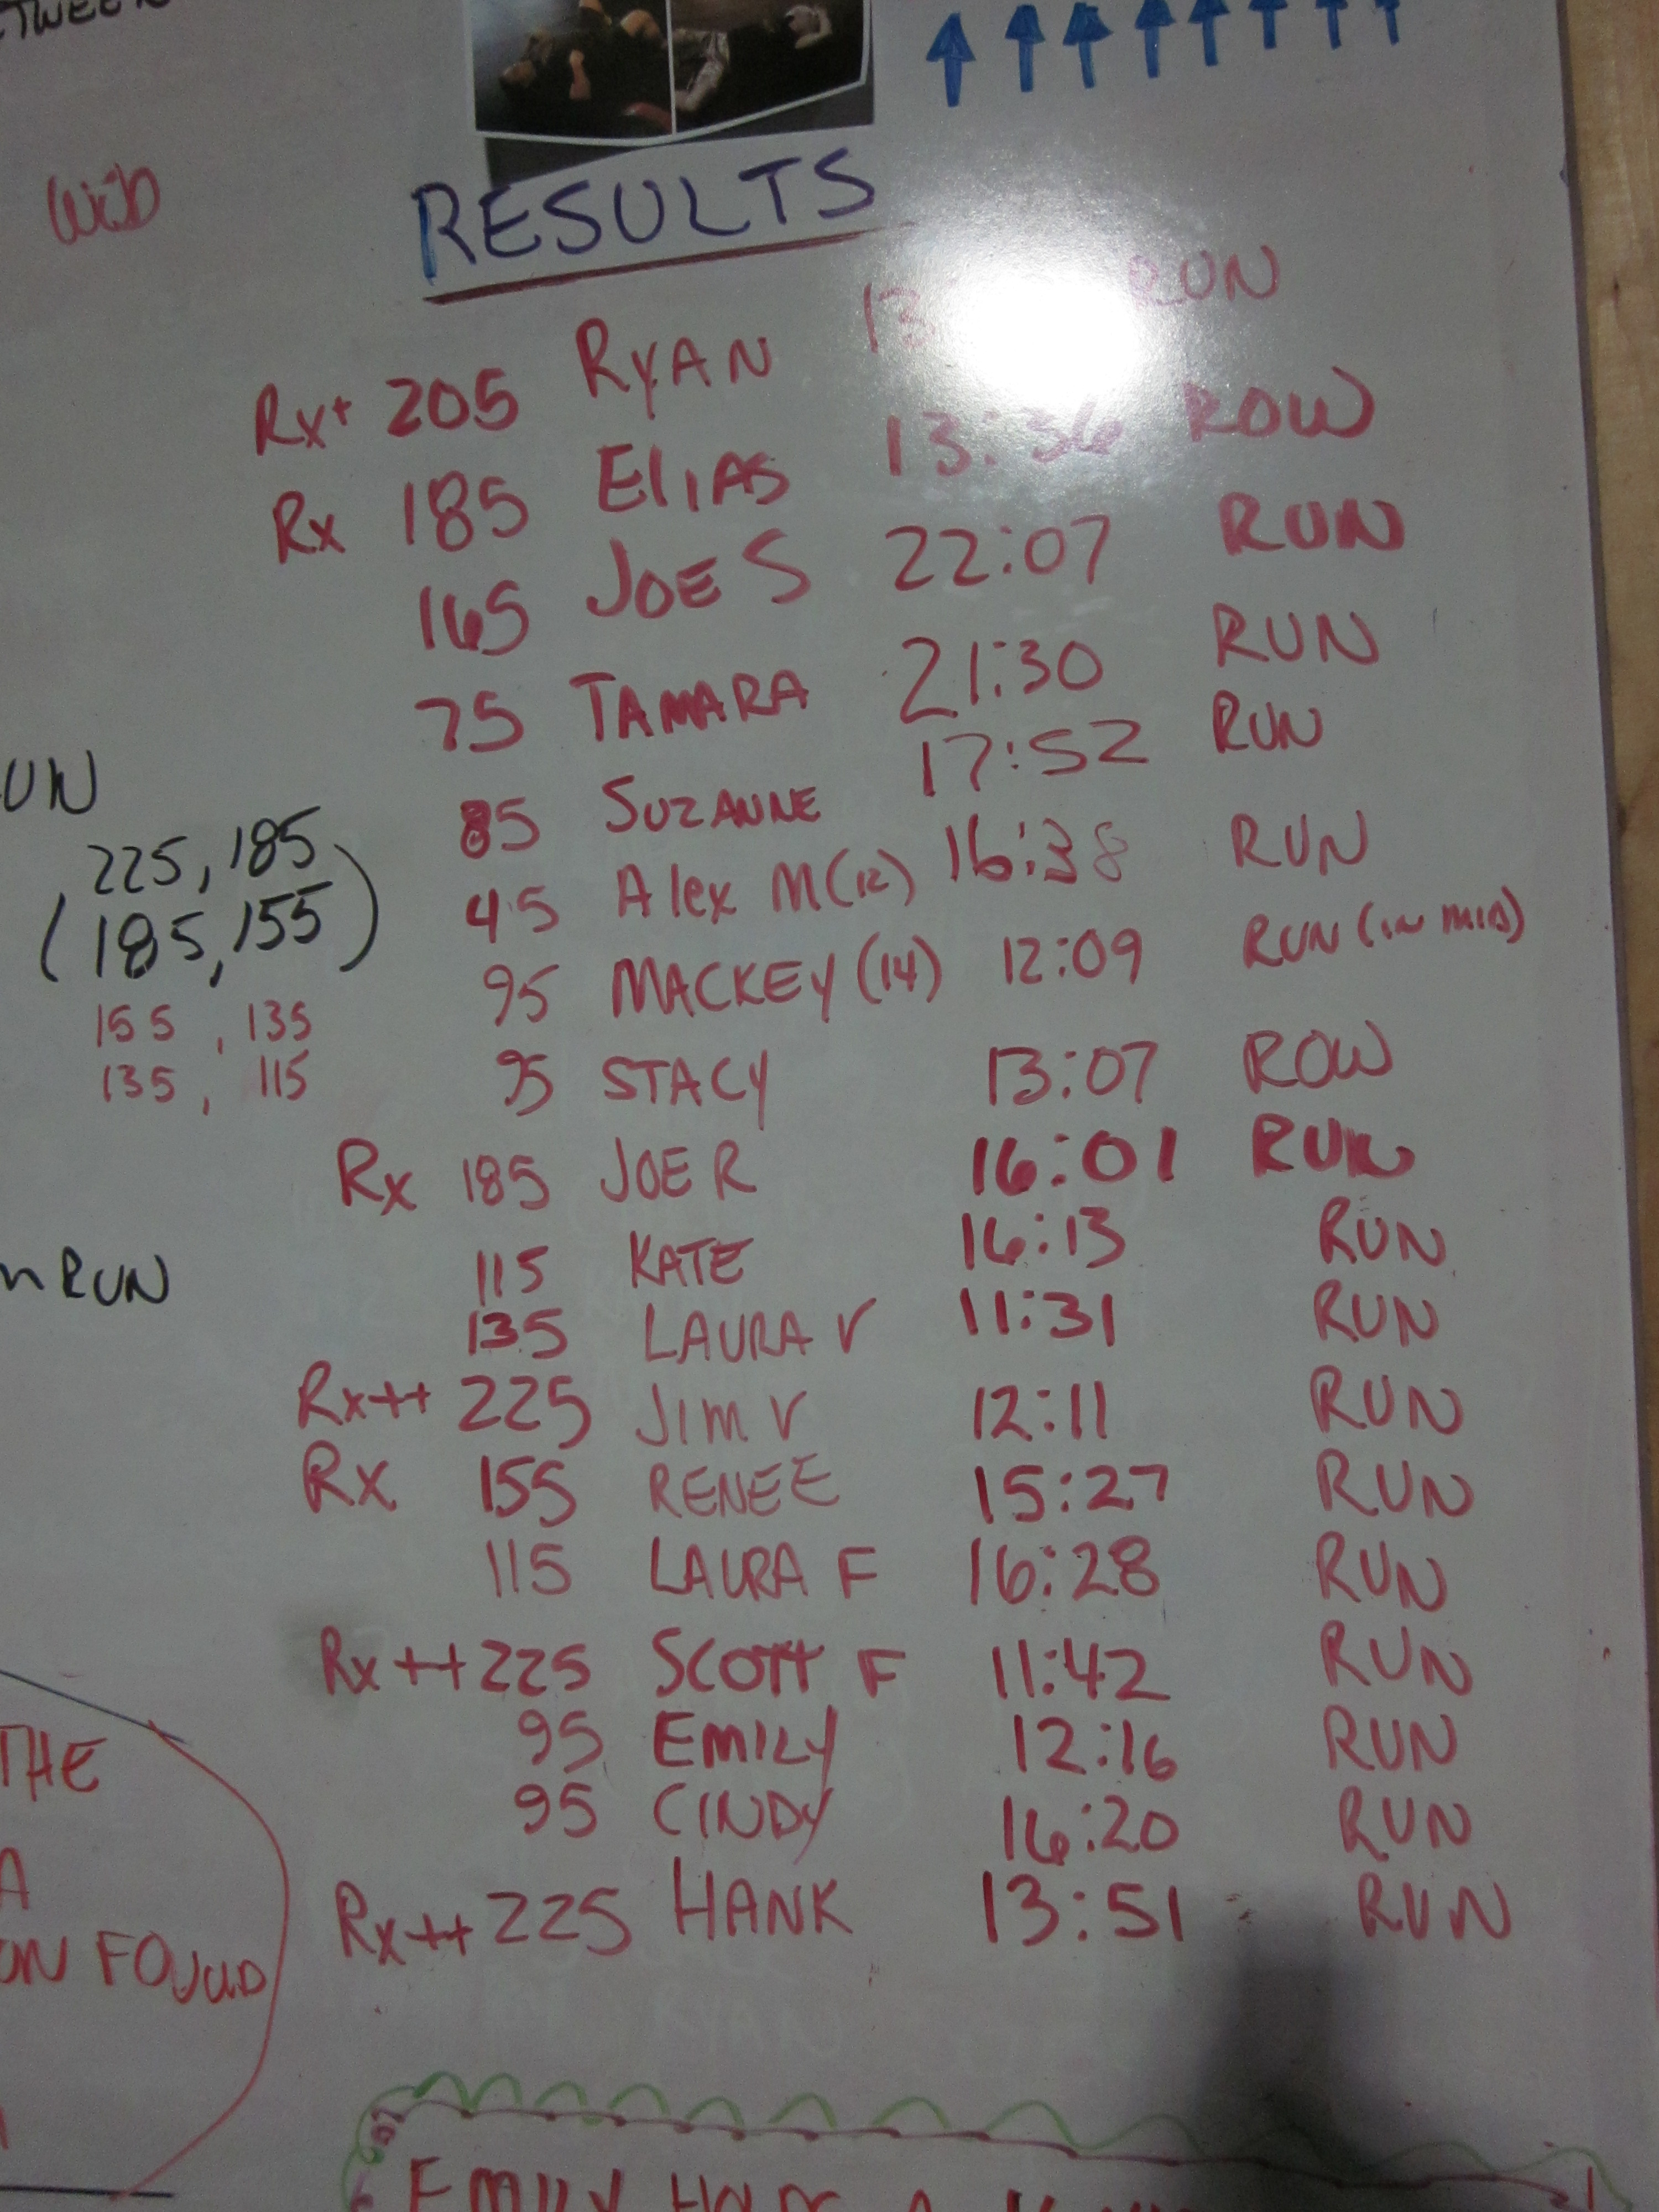 WOD
RESULTS
Rx+ 205 RYAN 13 RUN
Rx 185 ELIAS 13:36 ROW
165 JOE S 22:07 RUN
75 TAMARA 21:30 RUN
85 SUZANNE 17:52 RUN
45 Alex M (12) 16:38 RUN
95 MACKEY (14) 12:09 RUN (IN MIA)
95 STACY 13:07 ROW
Rx 185 JOE R 16:01 RUN
115 KATE 16:13 RUN
135 LAURA V 11:31 RUN
Rx++ 225 JIM V 12:11 RUN
Rx 155 RENEE 15:27 RUN
115 LAURA F 16:28 RUN
Rx++ 225 SCOTT F 11:42 RUN
95 EMILY 12:16 RUN
95 CINDY 16:20 RUN
Rx++ 225 HANK 13:51 RUN
UN
225, 185
(185, 155)
155, 135
135, 115
RUN
THE
A
ON FOUND
EMILY